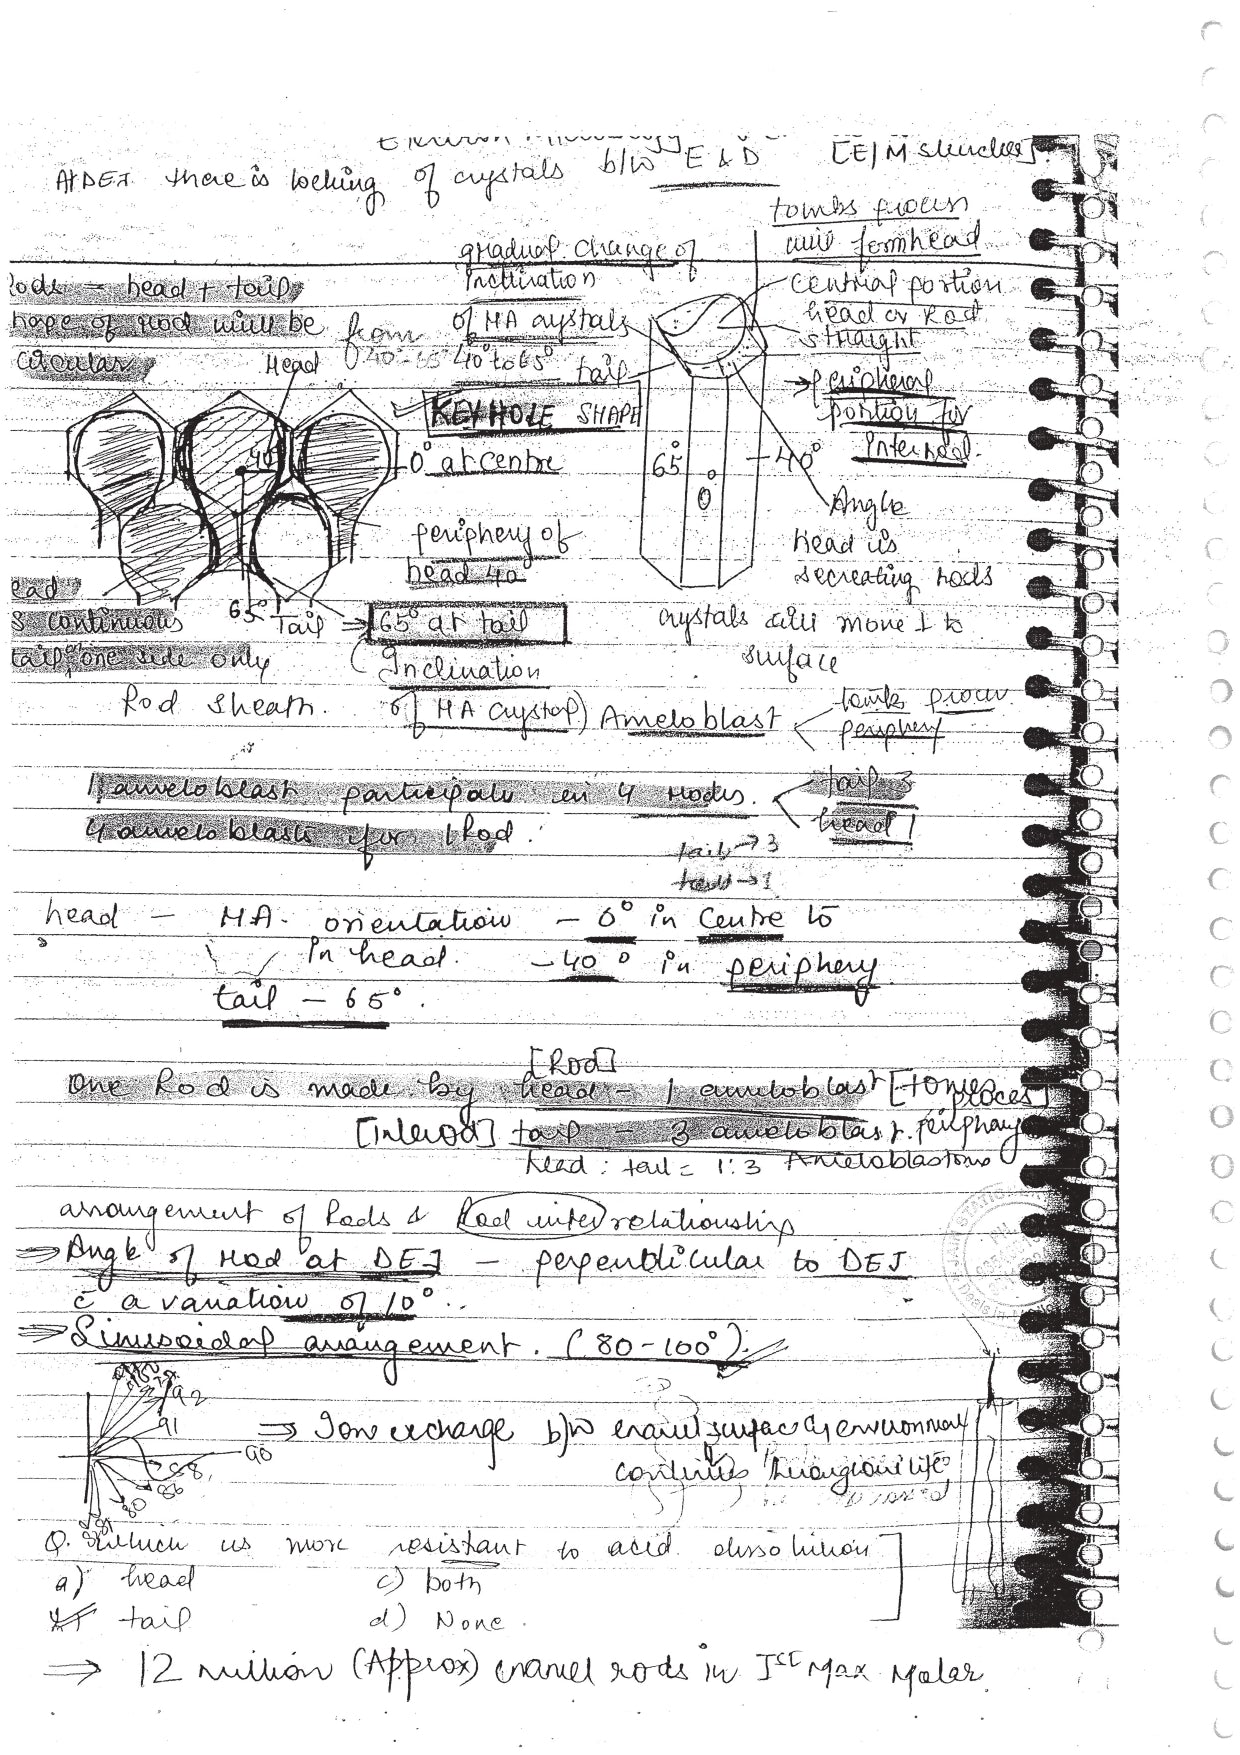 Electron Microscopy
[E/M structure]
At DEJ there is locking of crystals b/w E & D
tombs process
will form head
gradual change of
Inclination
of HA crystals
from 40°-65° 40° to 65°
central portion
head or Rod
straight
Rods - head + tail
shape of rod will be
circular
Head
tail
→ peripheral
portion for
Interrod.
KEYHOLE SHAPE
40
0° at centre
65°
0°
-40°
Angle
periphery of
head 40
head is
secreating rods
head
is continuous
tail one side only
65° Tail ⇒ 65° at tail
crystals will move ⊥ to
surface
Inclination
of HA crystal)
Rod Sheath.
Ameloblast
tombs process
periphery
1 ameloblast participate in 4 rods.
tail 3
head 1
4 ameloblasts for 1 Rod.
tail → 3
head - HA. orientation - 0° in Centre to
In head. - 40° in periphery
tail - 65°.
[Rod]
One Rod is made by head - 1 ameloblast [tomes proces]
[interod] tail - 3 ameloblast. periphary
head : tail = 1:3 Ameloblastoms
arrangement of Rods & Rod inter relationship
⇒ Angle of rod at DEJ - perpendicular to DEJ
c̄ a variation of 10°.
⇒ Sinusoidal arrangement. (80-100°).
92
91
90
88
86
80
⇒ Ion exchange b/w enamel surface & environment
continues throughout life
Q. Which is more resistant to acid dissolution
a) head c) both
tail d) None.
⇒ 12 million (Approx) enamel rods in Ist Max Molar.